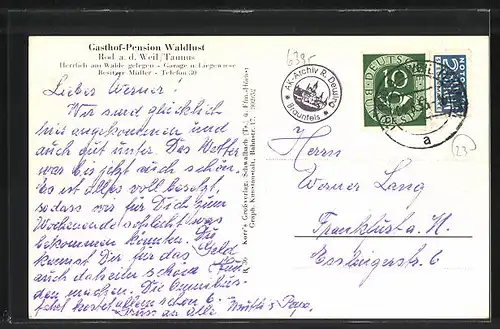 Gasthof-Pension Waldlust
Rod a. d. Weil/Taunus
Herrlich am Walde gelegen - Garage u. Liegewiese
Besitzer Müller - Telefon 30
Lieber Werner!
Wir sind glücklich
hier angekommen und
auch gut unter. Das Wetter
war bis jetzt auch schön.
Es ist alles voll besetzt,
sodass wir für Dich zum
Wochenende schlecht was
bekommen konnten. Du
kannst Dir für das Geld
auch daheim schöne Stun-
den machen. Die Omnibus-
fahrt kostet allein schon 6.
Gruss an alle Mutti u. Papa.
Korr's Großverlag, Schwalbach (Ts.) u. Ffm.-Höchst
Graph. Kunstanstalt, Bahnstr. 17, 302032
R 30
639-
AK-Archiv R. Deusing
Braunfels
DEUTSCHE BUNDESPOST
10
NOTOPFER
2
BERLIN
a
23
Herrn
Werner Lang
Frankfurt a. M.
Esslingerstr. 6